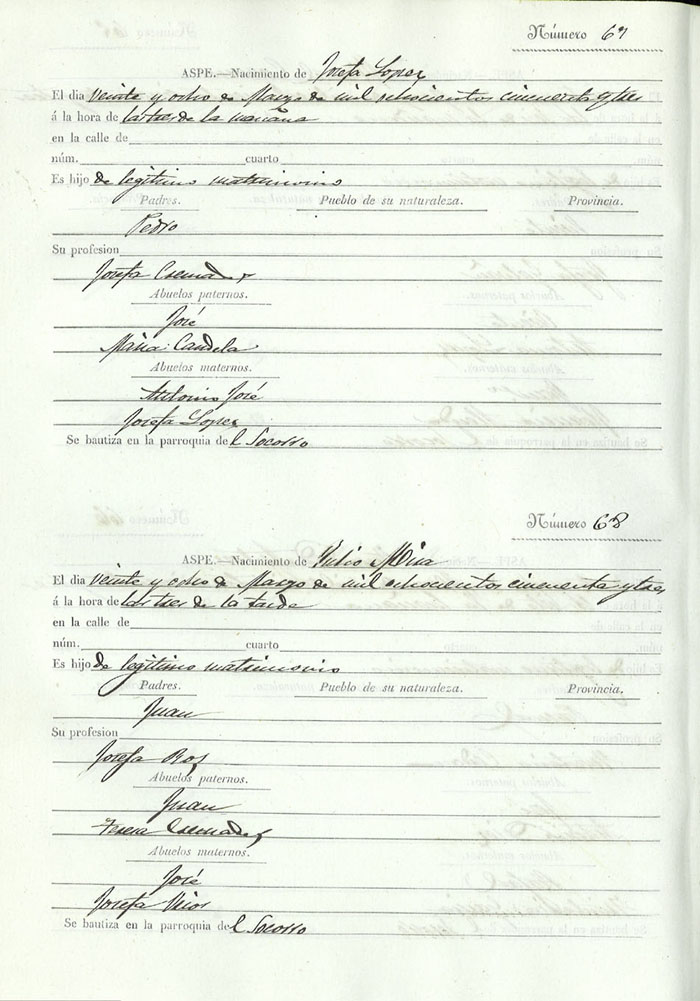 Número 67
ASPE.—Nacimiento de Josefa Lopez
El dia veinte y ocho de Marzo de mil ochocientos cincuenta y tres
á la hora de las tres de la mañana
en la calle de
núm. cuarto
Es hijo de legitimo matrimonio
Padres. Pueblo de su naturaleza. Provincia.
Pedro
Su profesion
Josefa
Abuelos paternos.
José
Maria Candela
Abuelos maternos.
Antonio José
Josefa Lopez
Se bautiza en la parroquia del Socorro
Número 68
ASPE.—Nacimiento de Mira
El dia veinte y ocho de Marzo de mil ochocientos cincuenta y tres
á la hora de las tres de la tarde
en la calle de
núm. cuarto
Es hijo de legitimo matrimonio
Padres. Pueblo de su naturaleza. Provincia.
Juan
Su profesion
Josefa
Abuelos paternos.
Juan
Teresa
Abuelos maternos.
José
Josefa
Se bautiza en la parroquia del Socorro